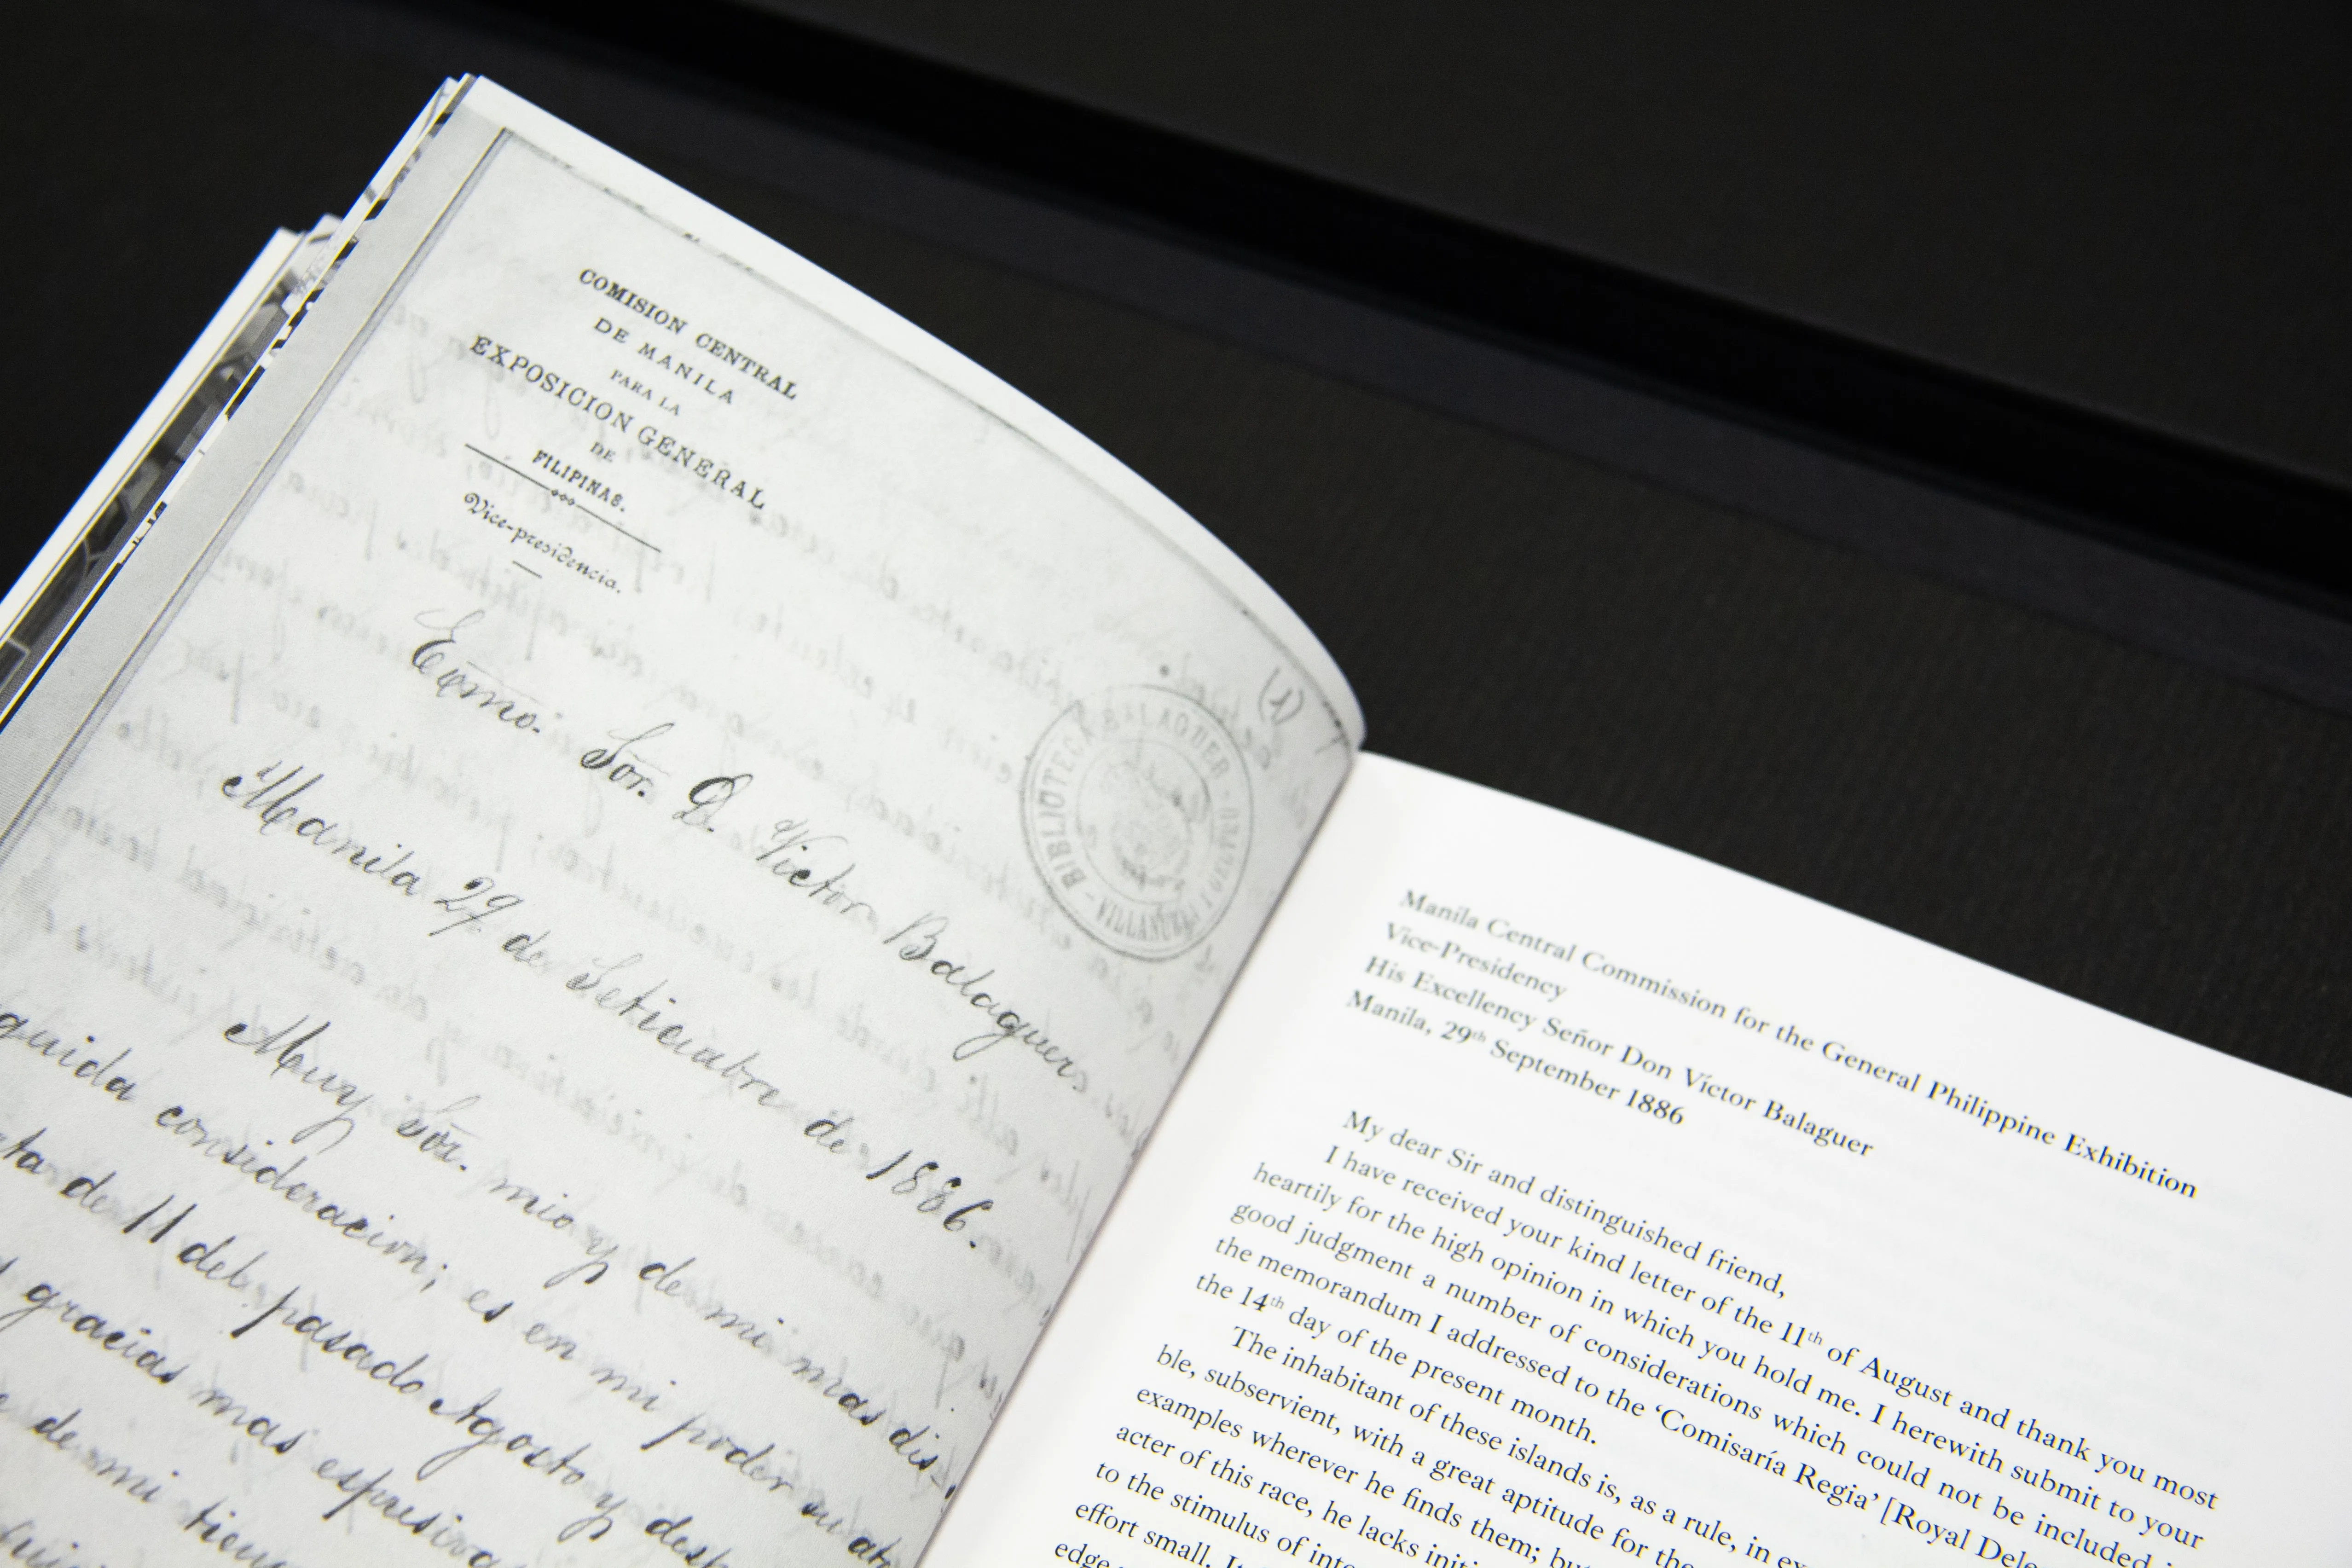 COMISION CENTRAL
DE MANILA
PARA LA
EXPOSICION GENERAL
DE
FILIPINAS.
Vice-presidencia.
(1)
BIBLIOTECA BALAGUER
Excmo. Sor. D. Victor Balaguer.
Manila 29 de Setiembre de 1886.
Muy Sor. mio y de mi mas dis-
guida consideracion; es en mi poder su
ta de 11 del pasado Agosto y
gracias mas espresiva
de mi
Manila Central Commission for the General Philippine Exhibition
Vice-Presidency
His Excellency Señor Don Víctor Balaguer
Manila, 29th September 1886
My dear Sir and distinguished friend,
I have received your kind letter of the 11th of August and thank you most
heartily for the high opinion in which you hold me. I herewith submit to your
good judgment a number of considerations which could not be included
the memorandum I addressed to the ‘Comisaría Regia’ [Royal
the 14th day of the present month.
The inhabitant of these islands is, as a rule, in
ble, subservient, with a great aptitude for the
examples wherever he finds them;
acter of this race, he lacks
to the stimulus of
effort small.